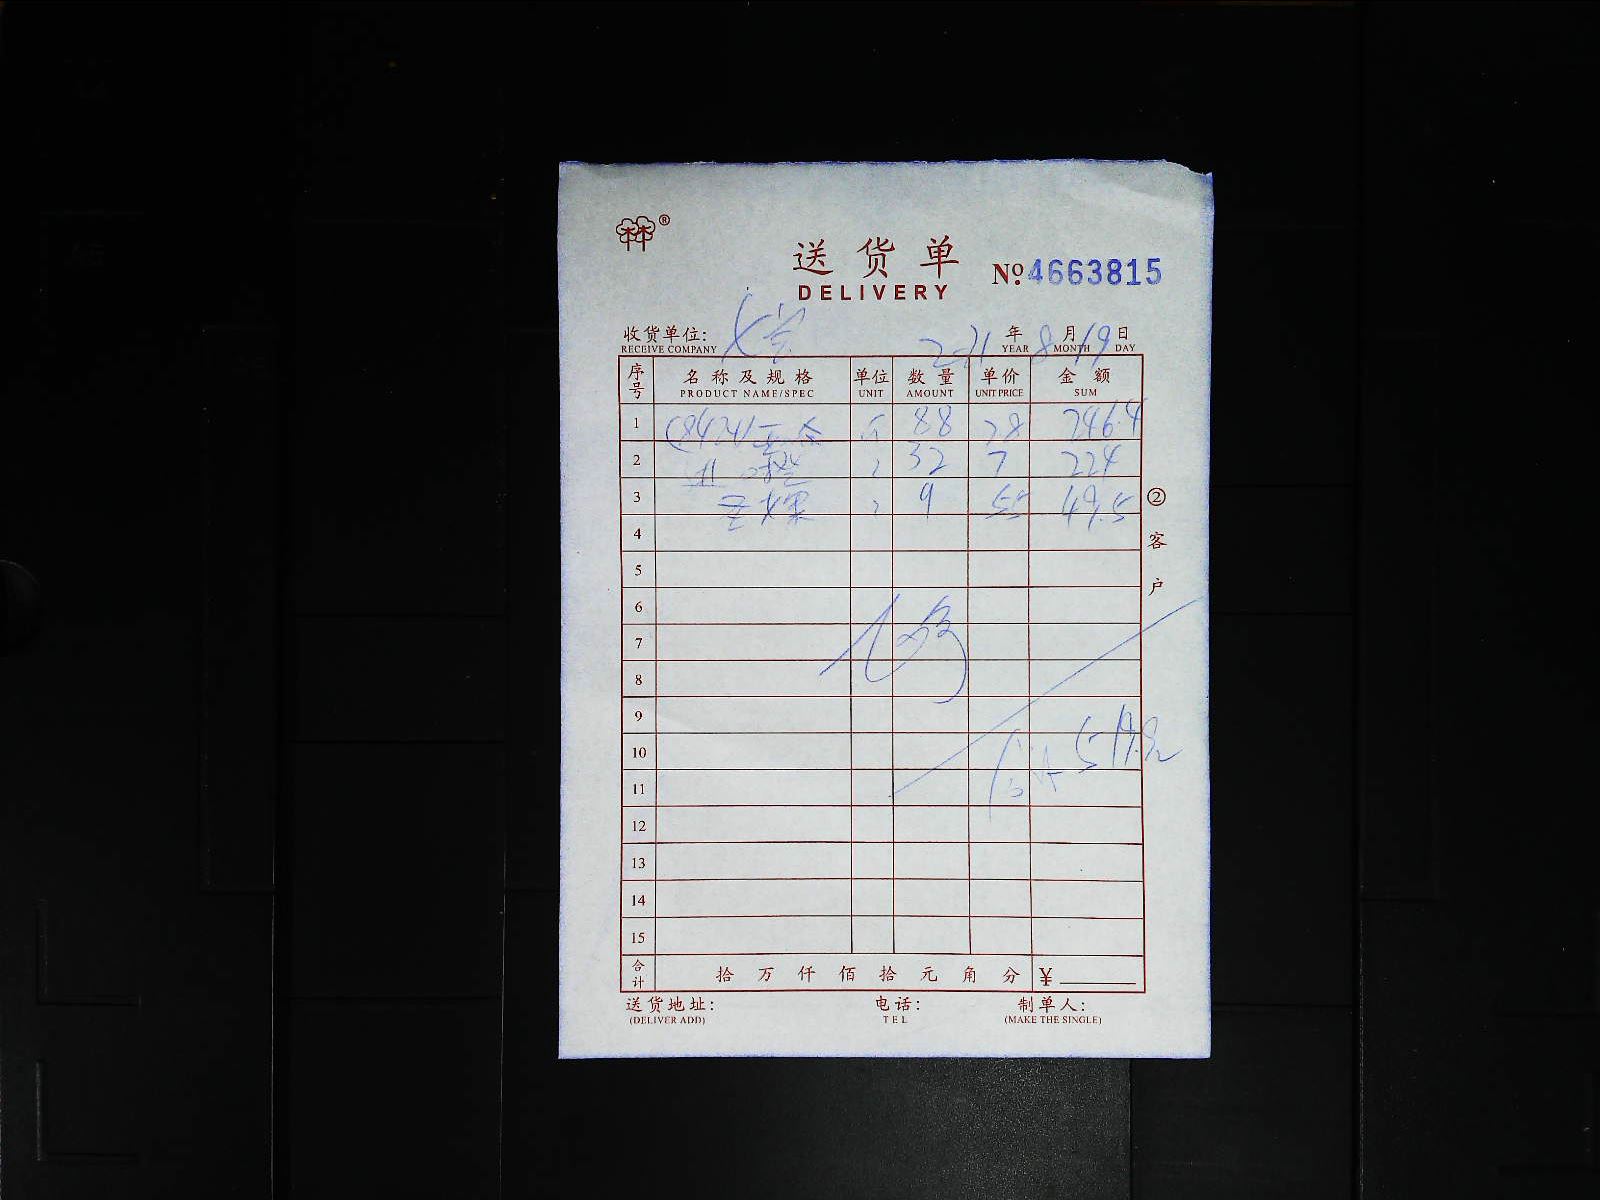 ®
送货单
DELIVERY
No. 4663815
收货单位:
RECEIVE COMPANY
2021 年 8 月 19 日
YEAR MONTH DAY
序号 名称及规格 单位 数量 单价 金额
PRODUCT NAME/SPEC UNIT AMOUNT UNIT PRICE SUM
1 88 28 246.4
2 32 7 224
3 9 55 49.5
4
5
6
7
8
9
10
11
12
13
14
15
② 客户
合计 拾 万 仟 佰 拾 元 角 分 ¥
送货地址: 电话: 制单人:
(DELIVER ADD) TEL (MAKE THE SINGLE)